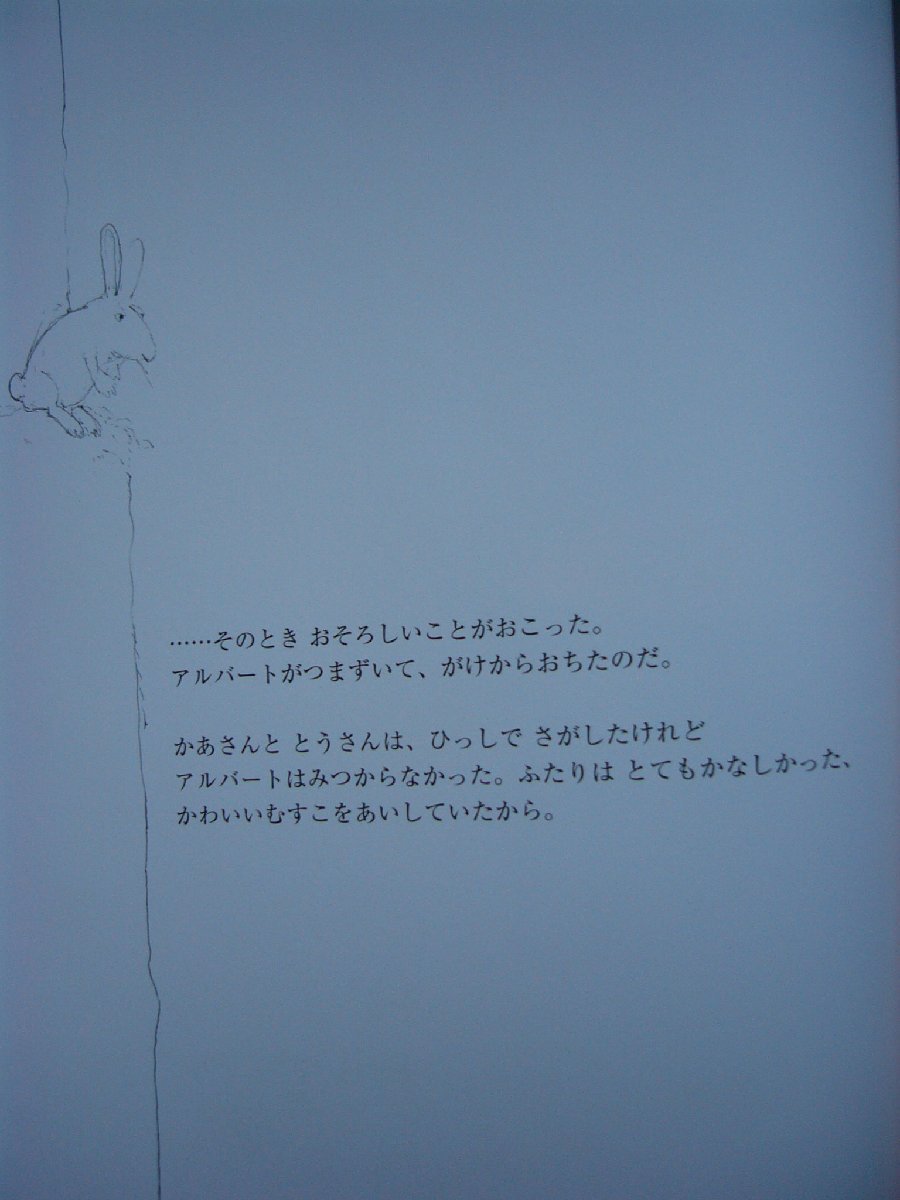 ……そのとき おそろしいことがおこった。
アルバートがつまずいて、がけからおちたのだ。
かあさんと とうさんは、ひっしで さがしたけれど
アルバートはみつからなかった。ふたりは とてもかなしかった、
かわいいむすこをあいしていたから。